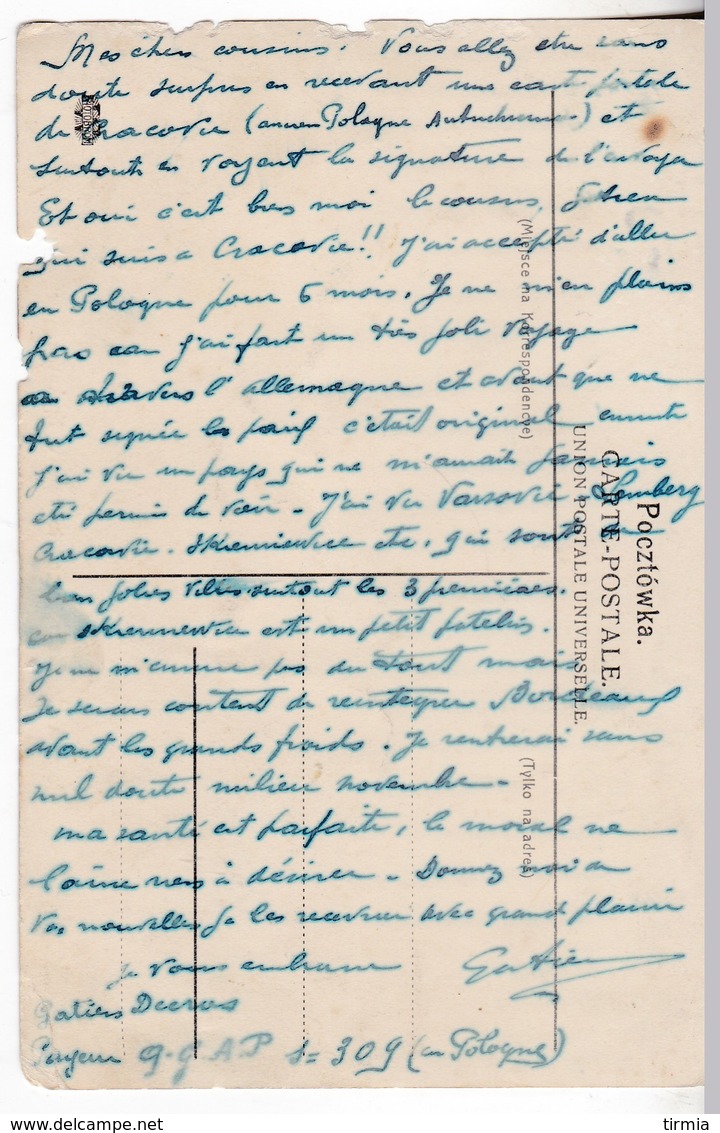 Mes chers cousins. Vous allez etre sans
doute surpris en recevant une carte postale
de Cracovie (ancien Pologne Autrichienne) et
surtout en voyant la signature de l'envoyeur
Et oui c'est bien moi le cousin Gatien
qui suis a Cracovie!! J'ai accepté d'aller
en Pologne pour 6 mois. Je ne m'en plains
pas car j'ai fait un très joli voyage
a travers l'allemagne et avant que ne
fut signée la paix c'était original ensuite
J'ai vu un pays qui ne m'aurait jamais
eté permis de voir - J'ai vu Varsovie Lemberg
Cracovie. Skierniewice etc, qui sont
bien jolies villes surtout les 3 premières.
car Skierniewice est un petit patelin.
Je ne m'ennuie pas du tout mais
Je serais content de reintegrer Bordeaux
avant les grands froids. Je rentrerai sans
nul doute milieu novembre -
ma santé est parfaite, le moral ne
laisse rien à désirer - Donnez moi de
Vos nouvelles Je les recevrai avec grand plaisir
Je vous embrasse Gatien
Gatien Decros
Payeur Q.G A.P S= 309 (en Pologne)
Pocztówka.
CARTE-POSTALE.
UNION POSTALE UNIVERSELLE.
(Miejsce na Korrespondencye)
(Tylko na adres)
tirmia